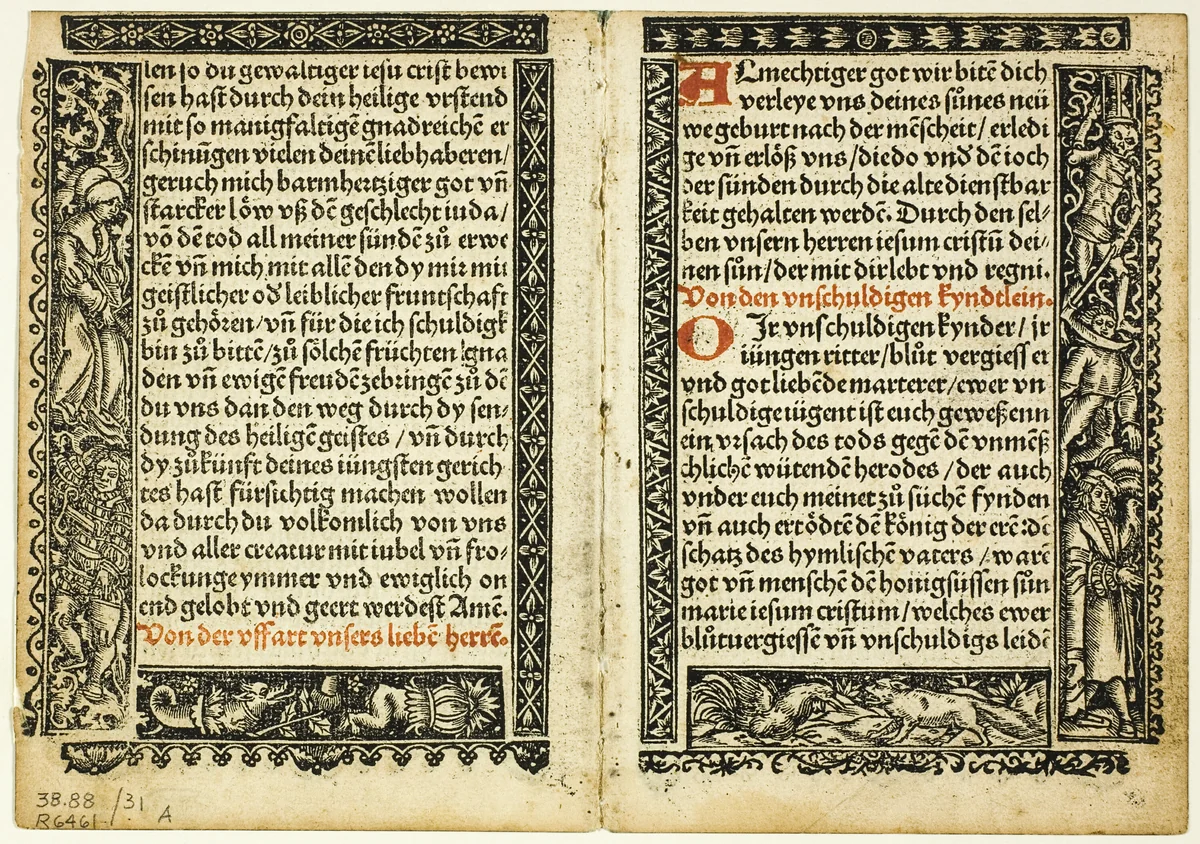 len so du gewaltiger iesu crist bewi
sen hast durch dein heilige vrstend
mit so manigfaltigē gnadreichē er
schinūgen vielen deinē liebhaberen/
geruch mich barmhertziger got vn̄
starcker löw vß dē geschlecht iuda/
vō dē tod all meiner sündē zů erwe
ckē vn̄ mich mit allē den dy mir mit
geistlicher od̄ leiblicher fruntschaft
zů gehören/vn̄ für die ich schuldigk
bin zů bittē/zů sölchē früchten gna
den vn̄ ewigē freudē zebringē zů dē
du vns dan den weg durch dy sen⸗
dung des heiligē geistes / vn̄ durch
dy zůkünft deines iüngsten gerich
tes hast fürsichtig machen wollen
da durch du volkomlich von vns
vnd aller creatur mit iubel vn̄ fro⸗
lockunge ymmer vnd ewiglich on
end gelobt vnd geert werdest Amē.
Von der vffart vnsers liebē herrē.
ALmechtiger got wir bitē dich
verleye vns deines sůnes neü
we geburt nach der mēscheit/ erledi
ge vn̄ erlöß vns/die do vnd̄ dē ioch
der sünden durch die alte dienstbar
keit gehalten werdē. Durch den sel⸗
ben vnsern herren iesum cristū dei⸗
nen sůn/der mit dir lebt vnd regni.
Von den vnschuldigen kyndtlein.
O Jr vnschuldigen kynder/ jr
iüngen ritter/blůt vergiess er
vnd got liebēde marterer/ewer vn
schuldige iügent ist euch geweßenn
ein vrsach des tods gegē dē vnmēß
chlichē wütendē herodes /der auch
vnder euch meinet zů süchē fynden
vn̄ auch ertödtē dē könig der erē :dē
schatz des hymlischē vaters /warē
got vn̄ menschē dē honigsüssen sůn
marie iesum cristum/welches ewer
blůtuergiessē vn̄ vnschuldigs leidē
38.88 /31
R6461 A